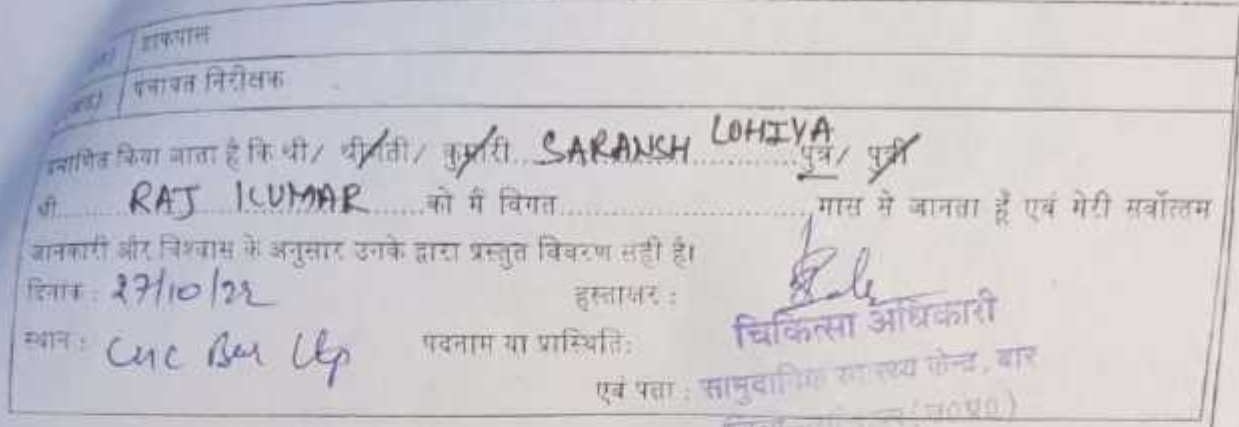 डाकपाल
पंचायत निरीक्षक
प्रमाणित किया जाता है कि श्री/ श्रीमती/ कुमारी SARANSH LOHIYA पुत्र/ पुत्री
श्री RAJ KUMAR को मैं विगत मास से जानता हूँ एवं मेरी सर्वोत्तम
जानकारी और विश्वास के अनुसार उनके द्वारा प्रस्तुत विवरण सही है।
दिनांक : 27/10/22 हस्ताक्षर :
चिकित्सा अधिकारी
स्थान : CHC Bar पदनाम या प्रास्थिति:
एवं पता : सामुदायिक स्वास्थ्य केन्द्र, बार
(उ०प्र०)